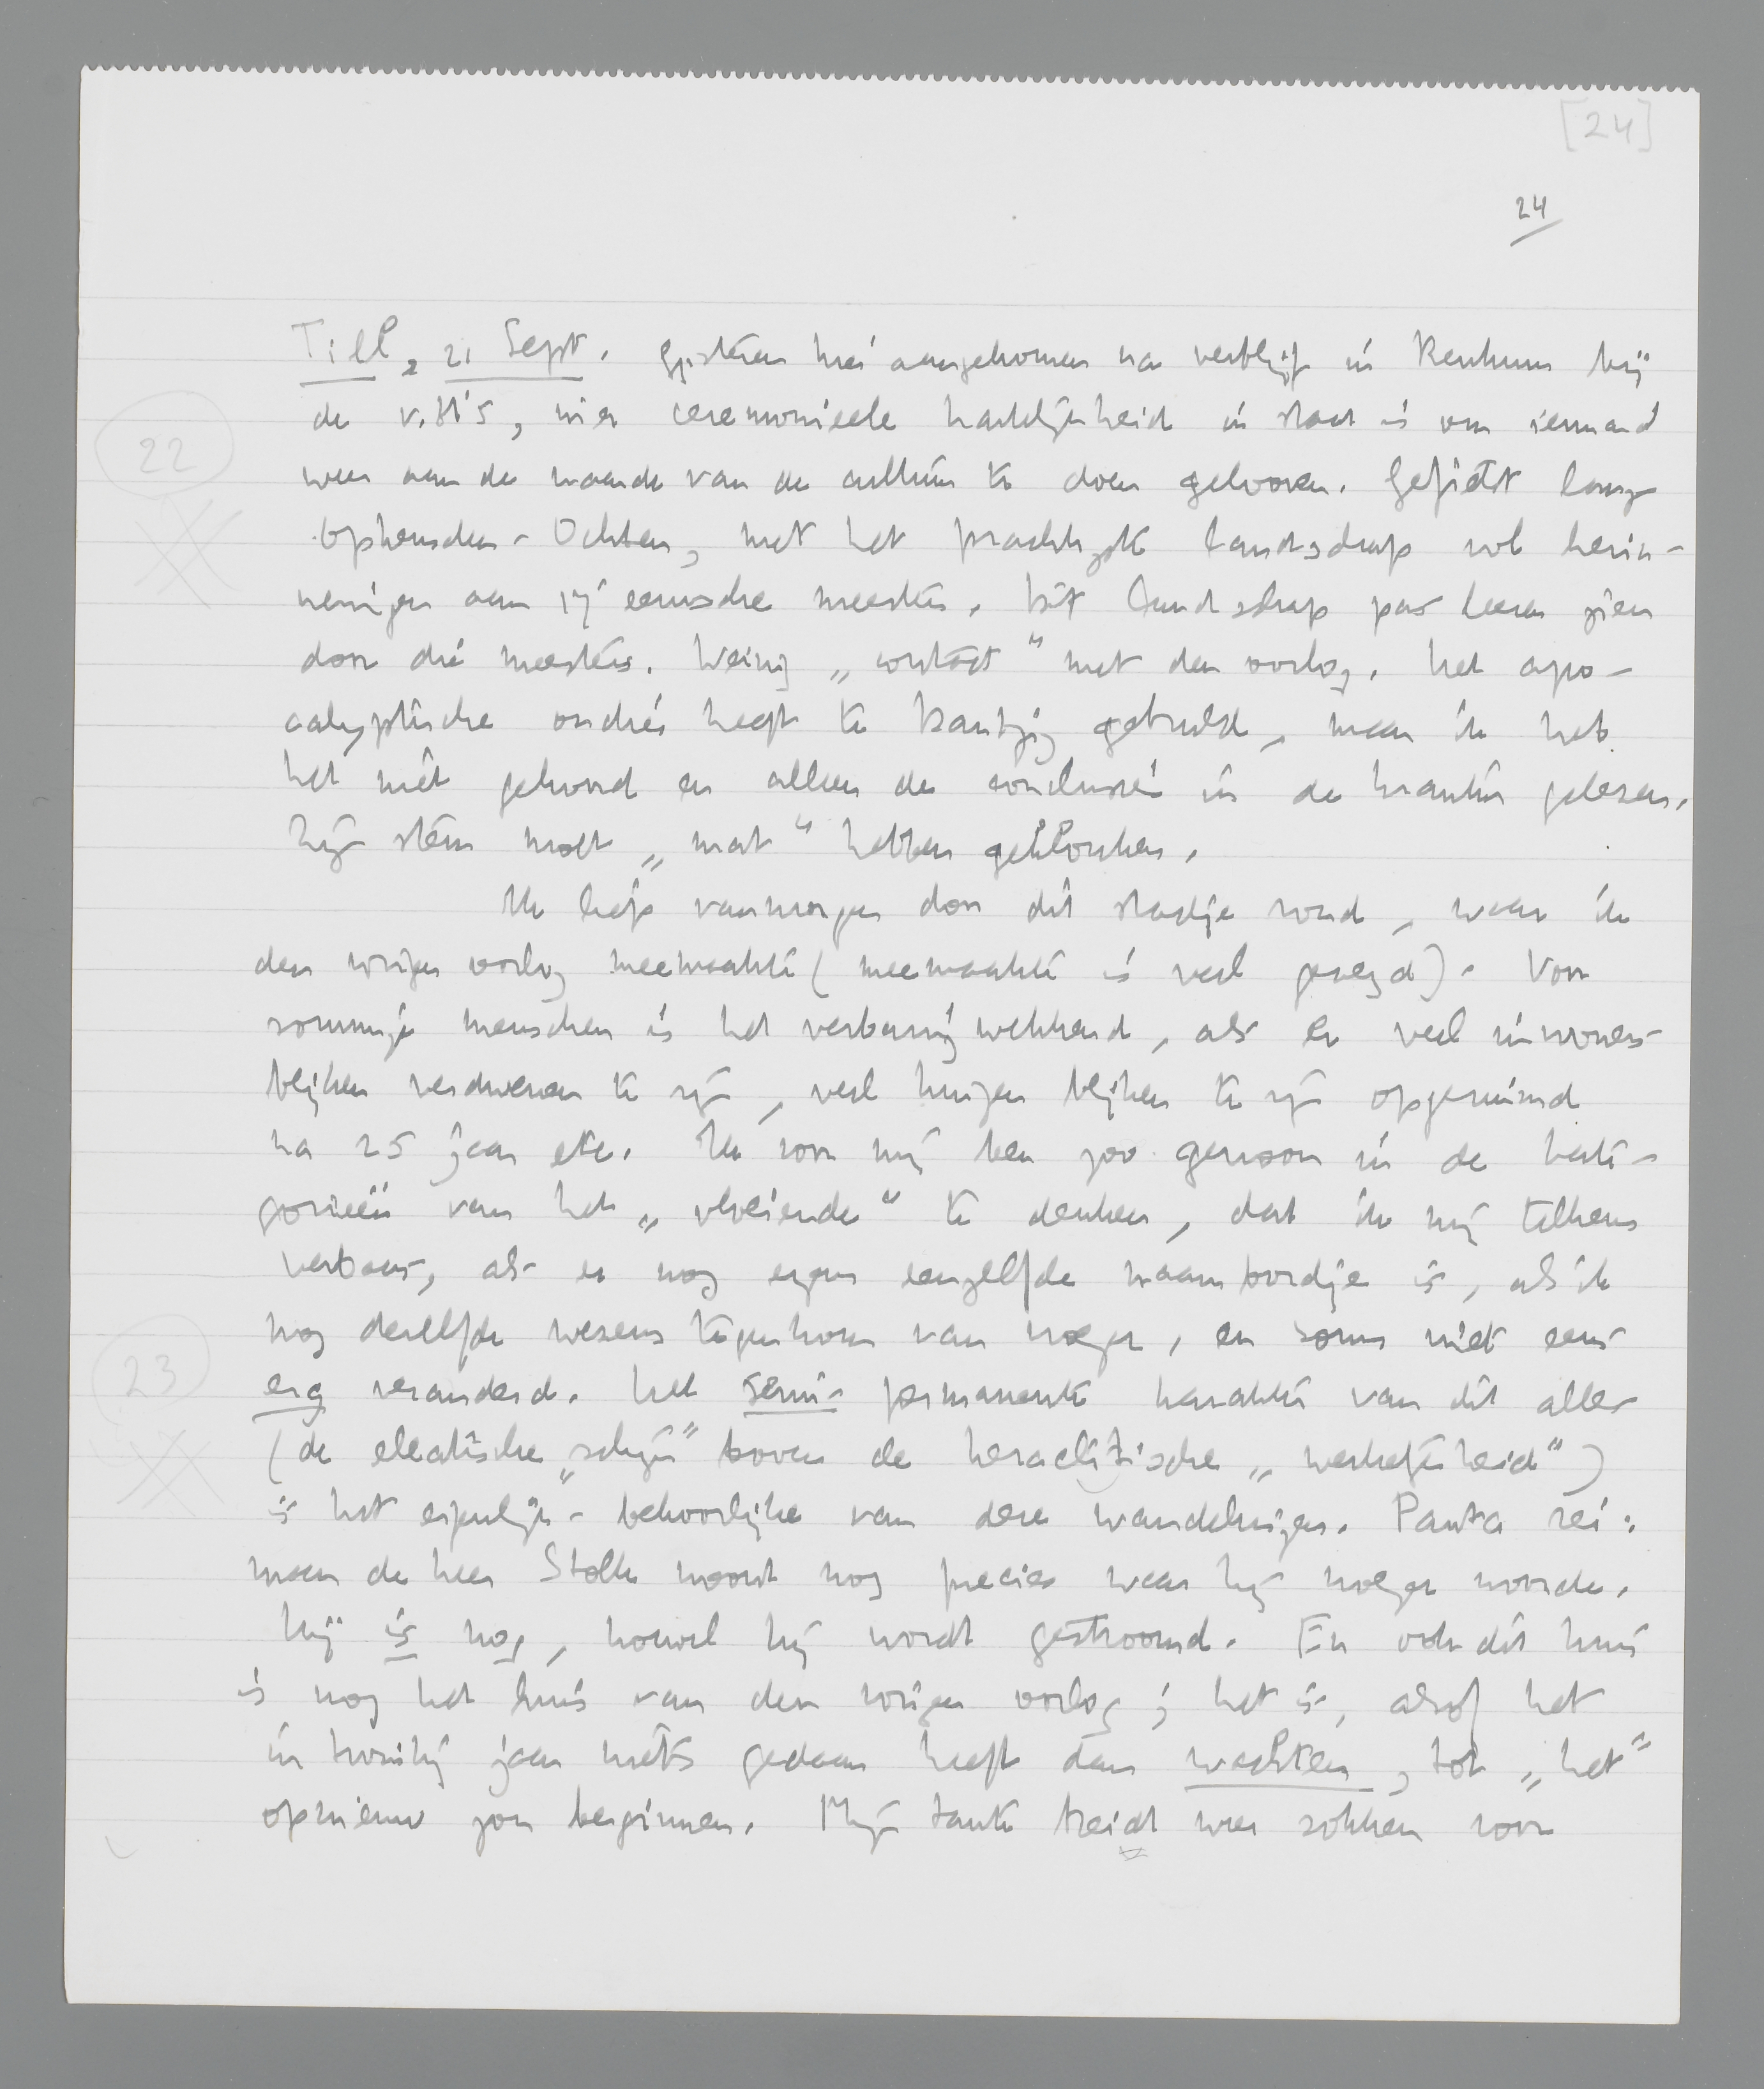 [24]
24
Tiel, 21 Sept. Gisteren hier aangekomen na verblijf in Renkum bij
de v.H's, wier ceremonieele hartelijkheid in staat is om iemand
weer aan de waarde van de cultuur te doen gelooven. Gefietst langs
Opheusden - Ochten, met het prachtigste landschap vol herin-
neringen aan 17e eeuwsche meesters. Dit landschap pas leeren zien
door die meesters. Weinig „contact" met den oorlog. Het apo-
calyptische ondier heeft te Dantzig gebruld, maar ik heb
het niet gehoord en alleen de conclusie in de kranten gelezen.
Zijn stem moet „mat" hebben geklonken.
Ik liep vanmorgen door dit stadje rond, waar ik
den vorigen oorlog meemaakte (meemaakte is veel gezegd). Voor
sommige menschen is het verbazingwekkend, als er veel inwoners
blijken verdwenen te zijn, veel huizen blijken te zijn opgeruimd
na 25 jaar etc. Ik voor mij ben zoo gewoon in de kate-
gorieën van het „vloeiende" te denken, dat ik mij telkens
verbaas, als er nog ergens eenzelfde naambordje is, als ik
nog dezelfde wezens tegenkom van vroeger, en soms niet eens
erg veranderd. Het semi-permanente karakter van dit alles
(de eleatische „schijn" boven de heraclitische „werkelijkheid")
is het eigenlijk-bekoorlijke van deze wandelingen. Panta rei:
maar de heer Stolk woont nog precies waar hij vroeger woonde.
Hij is nog, hoewel hij wordt gestroomd. En ook dit huis
is nog het huis van den vorigen oorlog; het is, alsof het
in twintig jaar niets gedaan heeft dan wachten, tot „het"
opnieuw zou beginnen. Mijn tante breidt weer sokken voor
22
23